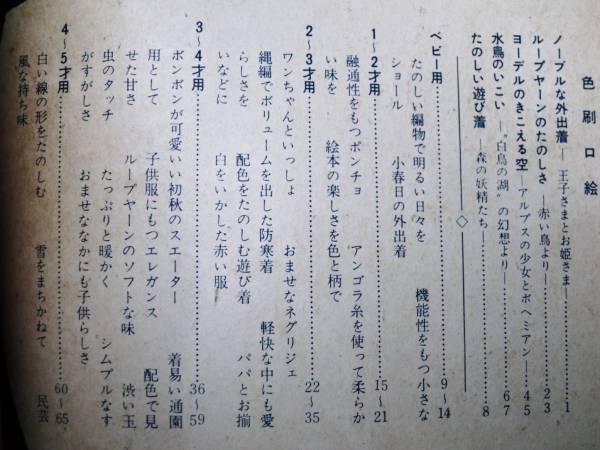 色刷口絵
ノーブルな外出着―王子さまとお姫さま―………1
ループヤーンのたのしさ―赤い鳥より―………2 3
ヨーデルのきこえる空―アルプスの少女とボヘミアン―…4 5
水鳥のいこい―〝白鳥の湖〟の幻想より―………6 7
たのしい遊び着―森の妖精たち―………8
ベビー用………9～14
たのしい編物で明るい日々を　機能性をもつ小さな
ショール　小春日の外出着
1～2才用………15～21
融通性をもつポンチョ　アンゴラ糸を使って柔らか
い味を　絵本の楽しさを色と柄で
2～3才用………22～35
ワンちゃんといっしょ　おませなネグリジェ
縄編でボリュームを出した防寒着　軽快な中にも愛
らしさを　配色をたのしむ遊び着　パパとお揃
いなどに　白をいかした赤い服
3～4才用………36～59
ボンボンが可愛いい初秋のスエーター　着易い通園
用として　子供服にもつエレガンス　配色で見
せた甘さ　ループヤーンのソフトな味　渋い玉
虫のタッチ　たっぷりと暖かく　シムプルなす
がすがしさ　おませななかにも子供らしさ
4～5才用………60～65
白い線の形をたのしむ　雪をまちかねて　民芸
風な持ち味